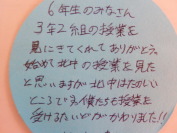 6年生のみなさん
3年2組の授業を
見にきてくれてありがとう。
始めて北中の授業を見た
と思いますが北中はたのしい
ところです。僕たちも授業を
受けるたいどがかわりました!!